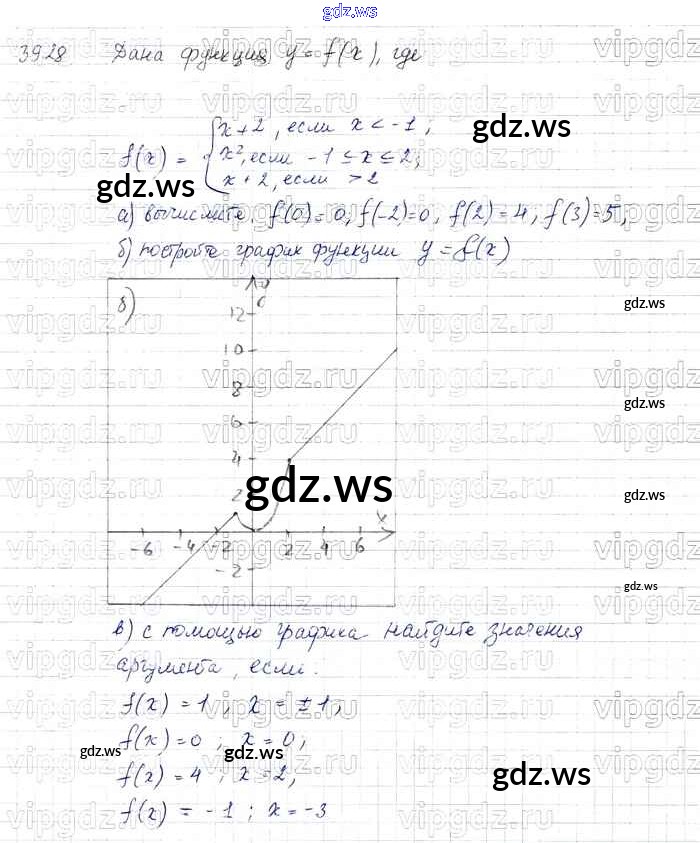 gdz.ws
39.28 Дана функция y = f(x), где
x+2, если x < -1;
f(x) = { x², если -1 ≤ x ≤ 2;
x+2, если > 2
gdz.ws
gdz.ws
а) вычислите, f(0)=0, f(-2)=0, f(2)=4, f(3)=5,
б) постройте график функции y = f(x)
б) y
12
gdz.ws
10
8
gdz.ws
6
4
2
gdz.ws
gdz.ws
x
-6 -4 -2 2 4 6
-2
gdz.ws
в) с помощью графика найдите значения
аргумента, если:
f(x) = 1, x = ±1,
f(x) = 0; x = 0;
gdz.ws gdz.ws
f(x) = 4; x = 2,
gdz.ws
f(x) = -1; x = -3
vipgdz.ru